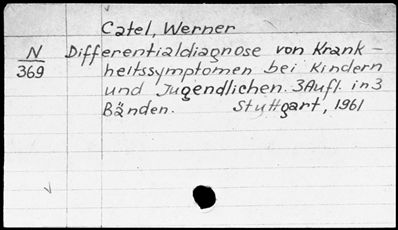 Catel, Werner
N Differentialdiagnose von Krank-
369 heitssymptomen bei Kindern
und Jugendlichen. 3Aufl. in 3
Bänden. Stuttgart, 1961